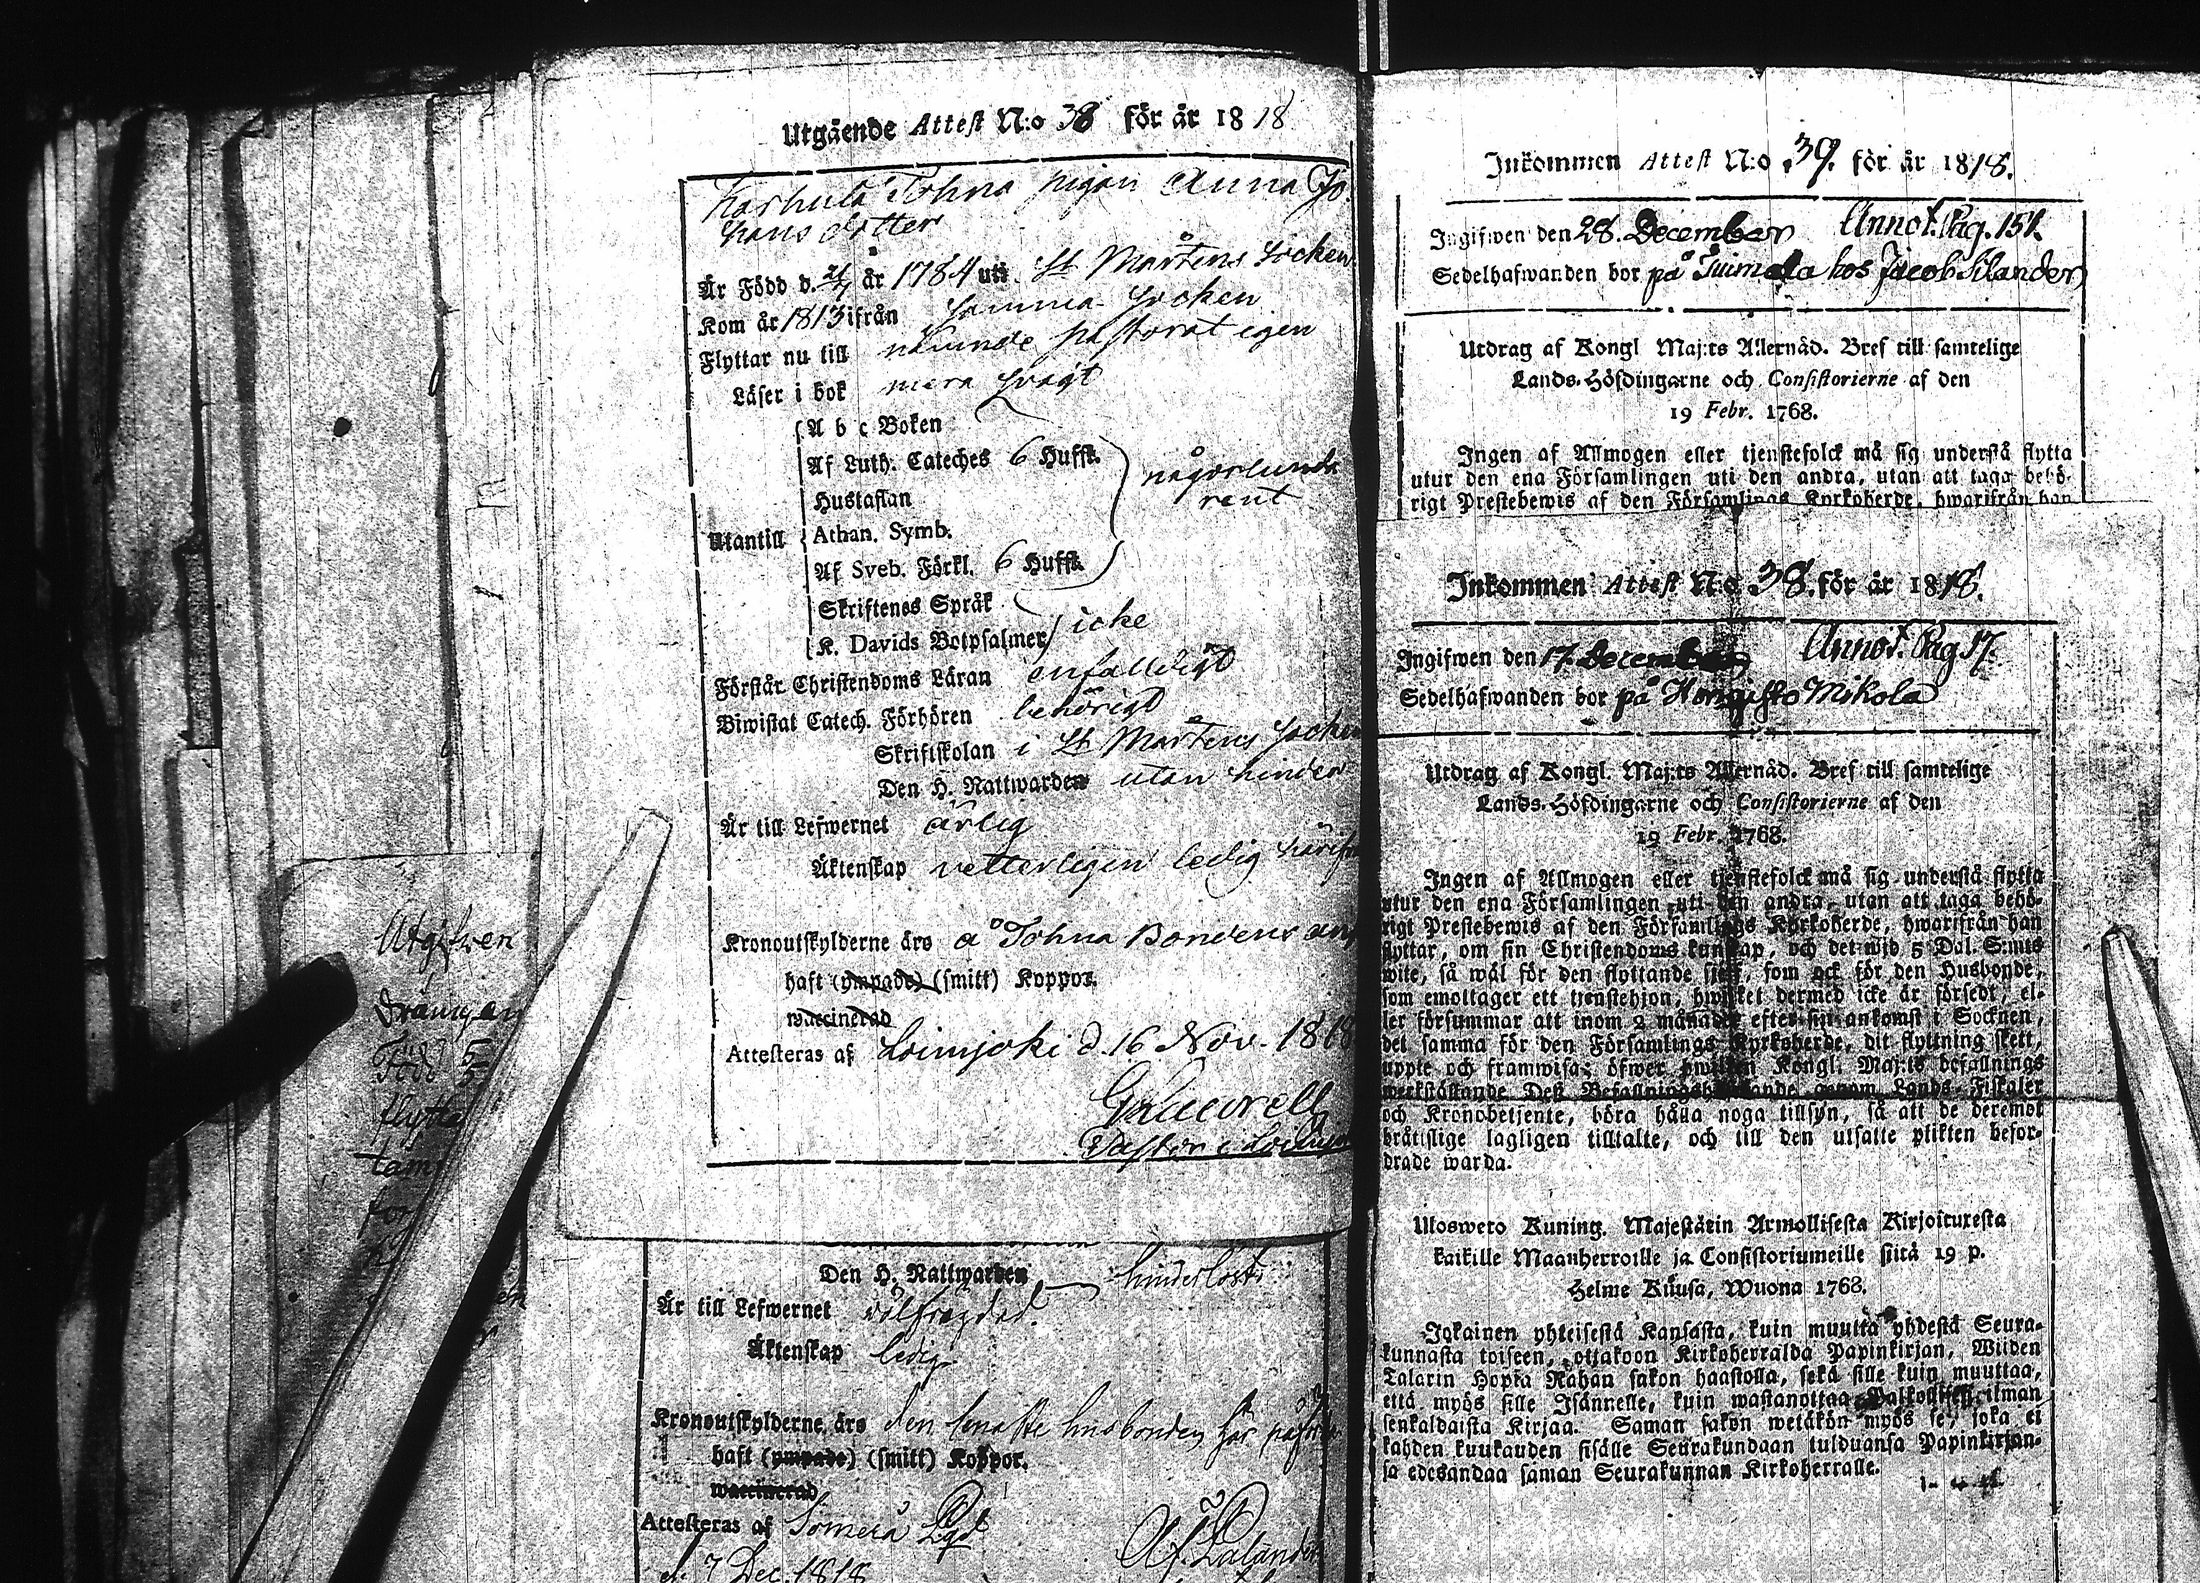 Utgående Attest N:o 38 för år 1818
Karhula Tohna pigan Anna Jo-
hans dotter
Är Född d. år 1784 uti St Mårtens Socken
Kom år 1813 ifrån samma Socken
Flyttar nu till nämnde pastorat igen
Läser i bok mera svagt
A b c Boken
Af Luth. Cateches 6 Hufst.
någorlunda
rent
Hustaflan
Utantill
Athan. Symb.
Af Sveb. Förkl. 6 Hufst.
Skriftenes Språk
K. Davids Botpsalmer icke
Förstår Christendoms Läran enfalldigt
Biwistat Catech. Förhören behörigt
Skriftskolan i St Mårtens Socken
Den H. Nattwarden utan hinder
Är till Lefwernet ärlig
Äktenskap vetterligen ledig härifrån
Kronoutskylderne äro å Tohna Bondens
haft (ympade) (smitt) Koppor.
waccinerad
Attesteras af Loimjoki d. 16 Nov. 1818
Pastor i
Utgifwen
Drängen
Född 5
flyttat
Den H. Nattwarden hinderlöst
Är till Lefwernet välfrägdad.
Äktenskap ledig
Kronoutskylderne äro den senaste husbonden här
haft (ympade) (smitt) Koppor.
waccinerad
Attesteras af Somero
d. 7 Dec. 1818
Inkommen Attest N:o 39. för år 1818.
Ingifwen den 28. December Annot. Pag. 151.
Sedelhafwanden bor på Tuimala hos Jacob Silander
Utdrag af Kongl Maj:ts Allernåd. Bref till samtelige
Lands-Höfdingarne och Consistorierne af den
19 Febr. 1768.
Ingen af Allmogen eller tjenstefolck må sig understå flytta
utur den ena Församlingen uti den andra, utan att taga behö-
rigt Prestebewis af den Församlings Kyrkoherde, hwarifrån han
Inkommen Attest N:o 38. för år 1818.
Ingifwen den 17. December Annot. Pag 17.
Sedelhafwanden bor på Hongisto Mikola
Utdrag af Kongl. Maj:ts Allernåd. Bref till samtelige
Lands-Höfdingarne och Consistorierne af den
19 Febr. 1768.
Ingen af Allmogen eller tjenstefolck må sig understå flytta
utur den ena Församlingen uti den andra, utan att taga behö-
rigt Prestebewis af den Församlings Kyrkoherde, hwarifrån han
flyttar, om sin Christendoms kunskap, och det wid 5 Dal. S:mts
wite, så wäl för den flyttande sjelf, som ock för den Husbonde,
som emottager ett tjenstehjon, hwilket dermed icke är försedt, el-
ler försummar att inom 2 månader efter sin ankomst i Socknen,
det samma för den Församlings Kyrkoherde, dit flyttning skett,
uppte och framwisa; öfwer hwilken Kongl. Maj:ts befallnings
werkställande Dess Befallningshafwande genom Lands-Fiskaler
och Kronobetjente, böra hålla noga tillsyn, så att de deremot
bråttslige lagligen tilltalte, och till den utsatte plikten befor-
drade warda.
Ulosweto Kuning. Majestätin Armollisesta Kirjoituxesta
kaikille Maanherroille ja Consistoriumeille siitä 19 p.
Helme Kuusa, Wuona 1768.
Jokainen yhteisestä Kansasta, kuin muuttä yhdestä Seura-
kunnasta toiseen, ottakoon Kirkoherralda Papinkirjan, Wiiden
Talarin Hopia Rahan sakon haastolla, sekä sille kuin muuttaa,
että myös sille Isännelle, kuin wastanottaa Palkollisen ilman
senkaldaista Kirjaa. Saman sakon wetäkön myös se, joka ei
kahden kuukauden sisälle Seurakundaan tulduansa Papinkirjan-
sa edesandaa saman Seurakunnan Kirkoherralle.